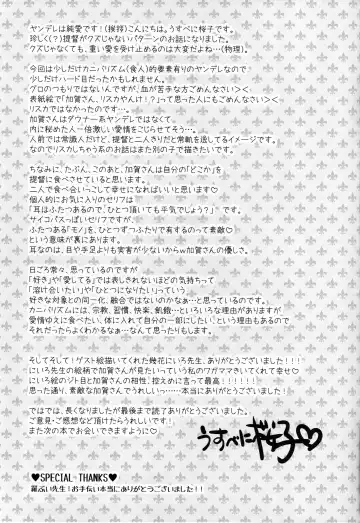 ヤンデレは純愛です！(挨拶)こんにちは。うすべに桜子です。
珍しく(？)提督がクズじゃないパターンのお話になりました。
クズじゃなくても、重い愛を受け止めるのは大変だよね…(物理)。
今回は少しだけカニバリズム(食人)的要素有りのヤンデレなので
少しだけハード目だったかもしれません。
グロのつもりではないんですが、血が苦手な方ごめんなさい＞＜
表紙絵で「加賀さん、リスカやんけ！？」って思った人もごめんなさい＞＜
リスカではなかったのです…。
加賀さんはダウナー系ヤンデレではなくて
内に秘めた人一倍激しい愛情をこじらせてそう…。
人前では常識人だけど、提督と二人きりだと常軌を逸してるイメージです。
なのでリスカしちゃう系のお話はまた別の子で描きたいです。
ちなみに、たぶん、このあと、加賀さんは自分の「どこか」を
提督に食べさせていると思います。
二人で食べ合いっこして幸せになればいいと思います♡
個人的にお気に入りのセリフは
「耳はふたつあるので、ひとつ頂いても平気でしょう？」です。
サイコパスっぽいセリフですが、
ふたつある「モノ」を、ひとつずつふたりで有するのって素敵♡
という意味が裏にあります。
耳なのは、目や手足よりも実害が少ないからw加賀さんの優しさ。
日ごろ常々、思っているのですが
「好き」や「愛してる」では表しきれないほどの気持ちって
「溶け合いたい」や「ひとつになりたい」っていう
好きな対象との同一化、融合ではないのかなぁ…と思っているのです。
カニバリズムには、宗教、習慣、快楽、飢餓…といろいろな理由がありますが
愛情ゆえに食べたい、体に入れて自分の一部にしたい、という理由もあるので
それだったらよくわかるなぁ…なんて思ったりもします。
そしてそして！ゲスト絵描いてくれた幾花にいろ先生、ありがとうございました！！！
にいろ先生の絵柄で加賀さんが見たいっていう私のワガママきいてくれて幸せ♡
にいろ絵のジト目と加賀さんの相性、控えめに言って最高！！！！！！
思った通り、素敵な加賀さんでうれしいっ……本当にありがとうございました！
ではでは、長くなりましたが最後まで読了ありがとうございました。
ご意見・ご感想など頂けたらうれしいです！
また次の本でお会いできますように♡
うすべに桜子♡
♥SPECIAL THANKS♥
先生！お手伝い本当にありがとうございました！！